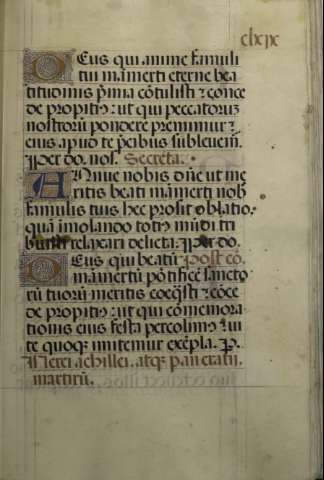 clxix
Deus qui anime famuli
tui mamerti eterne bea
titudinis p̃mia cõtulisti ⁊ conce
de propiti9: ut qui peccatoruꝫ
nostrorũ pondere premimur ⁊
eius apud te p̃cibus subleuem̃.
Per do. nos̃. Secreta.
Annue nobis dñe ut me
ritis beati mamerti nob̃
famulis tuis hec prosit oblatio.
quã imolando totiꝰ mũdi tri
buisti relaxari delicta. Per do.
Deus qui beatũ Post cõ.
mamertũ põtifice᷑ sancto
rũ tuorũ meritis coeq̃sti ⁊ cõce
de propitiꝰ: ut qui cõmemora
tionis eius festa percolimꝰ ⁊ ui
te quoqꝫ imitemur exẽpla. P.
Nerei achillei. atqꝫ pancratii.
martirũ.